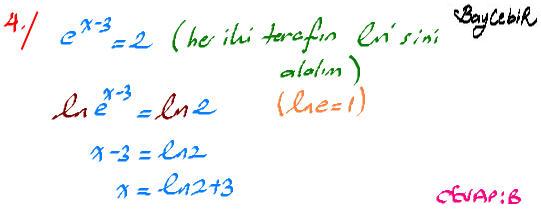 4./ e^{x-3} = 2 (her iki tarafın ln'sini BayCebiR
alalım)
ln e^{x-3} = ln 2 (lne=1)
x-3 = ln2
x = ln2+3
CEVAP: B